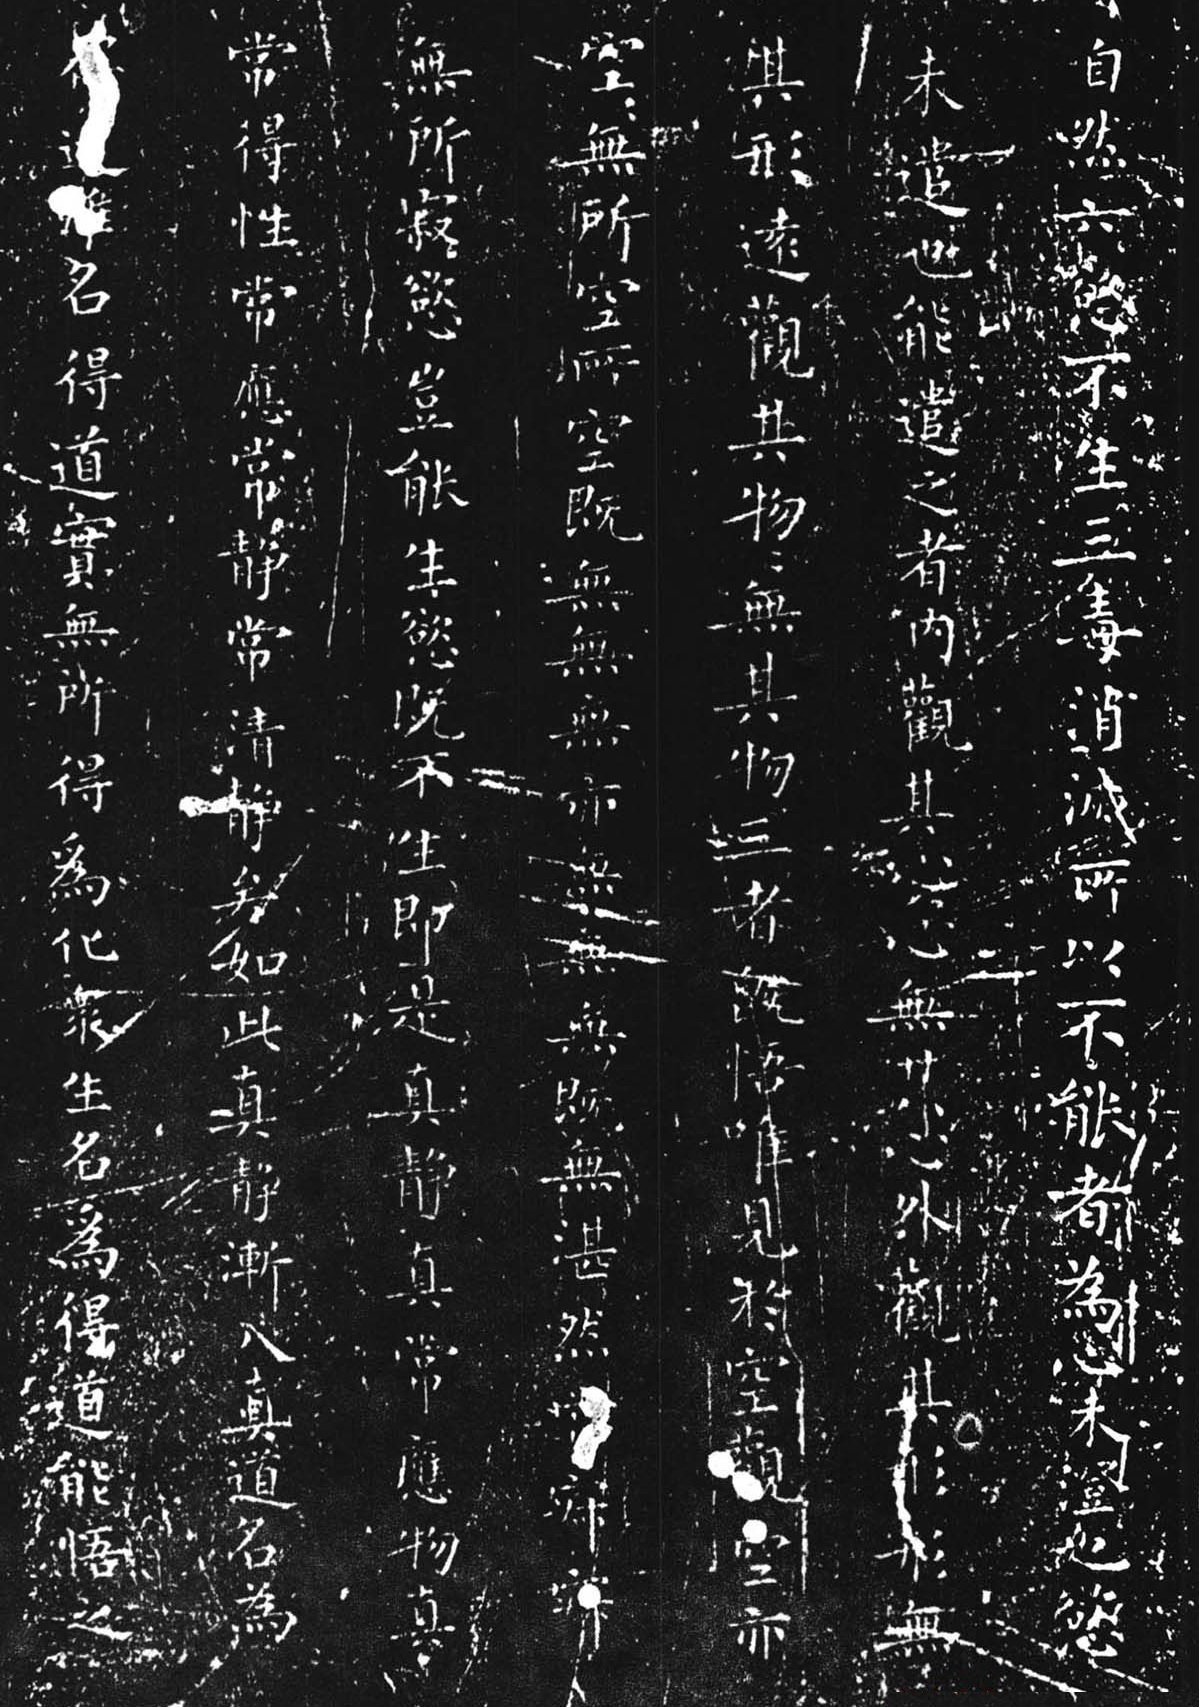 自然六慾不生三毒消滅所以不能者為心未澄也慾
未遣也能遣之者内觀其心心無其心外觀其形形無
其形遠觀其物〻無其物三者既悟唯見於空觀空亦
空〻無所空所空既無無無亦無無無既無湛然常寂寂
無所寂慾豈能生慾既不生即是真静真常應物真
常得性常應常静常清静矣如此真静漸入真道名為
道雖名得道實無所得為化衆生名為得道能悟之